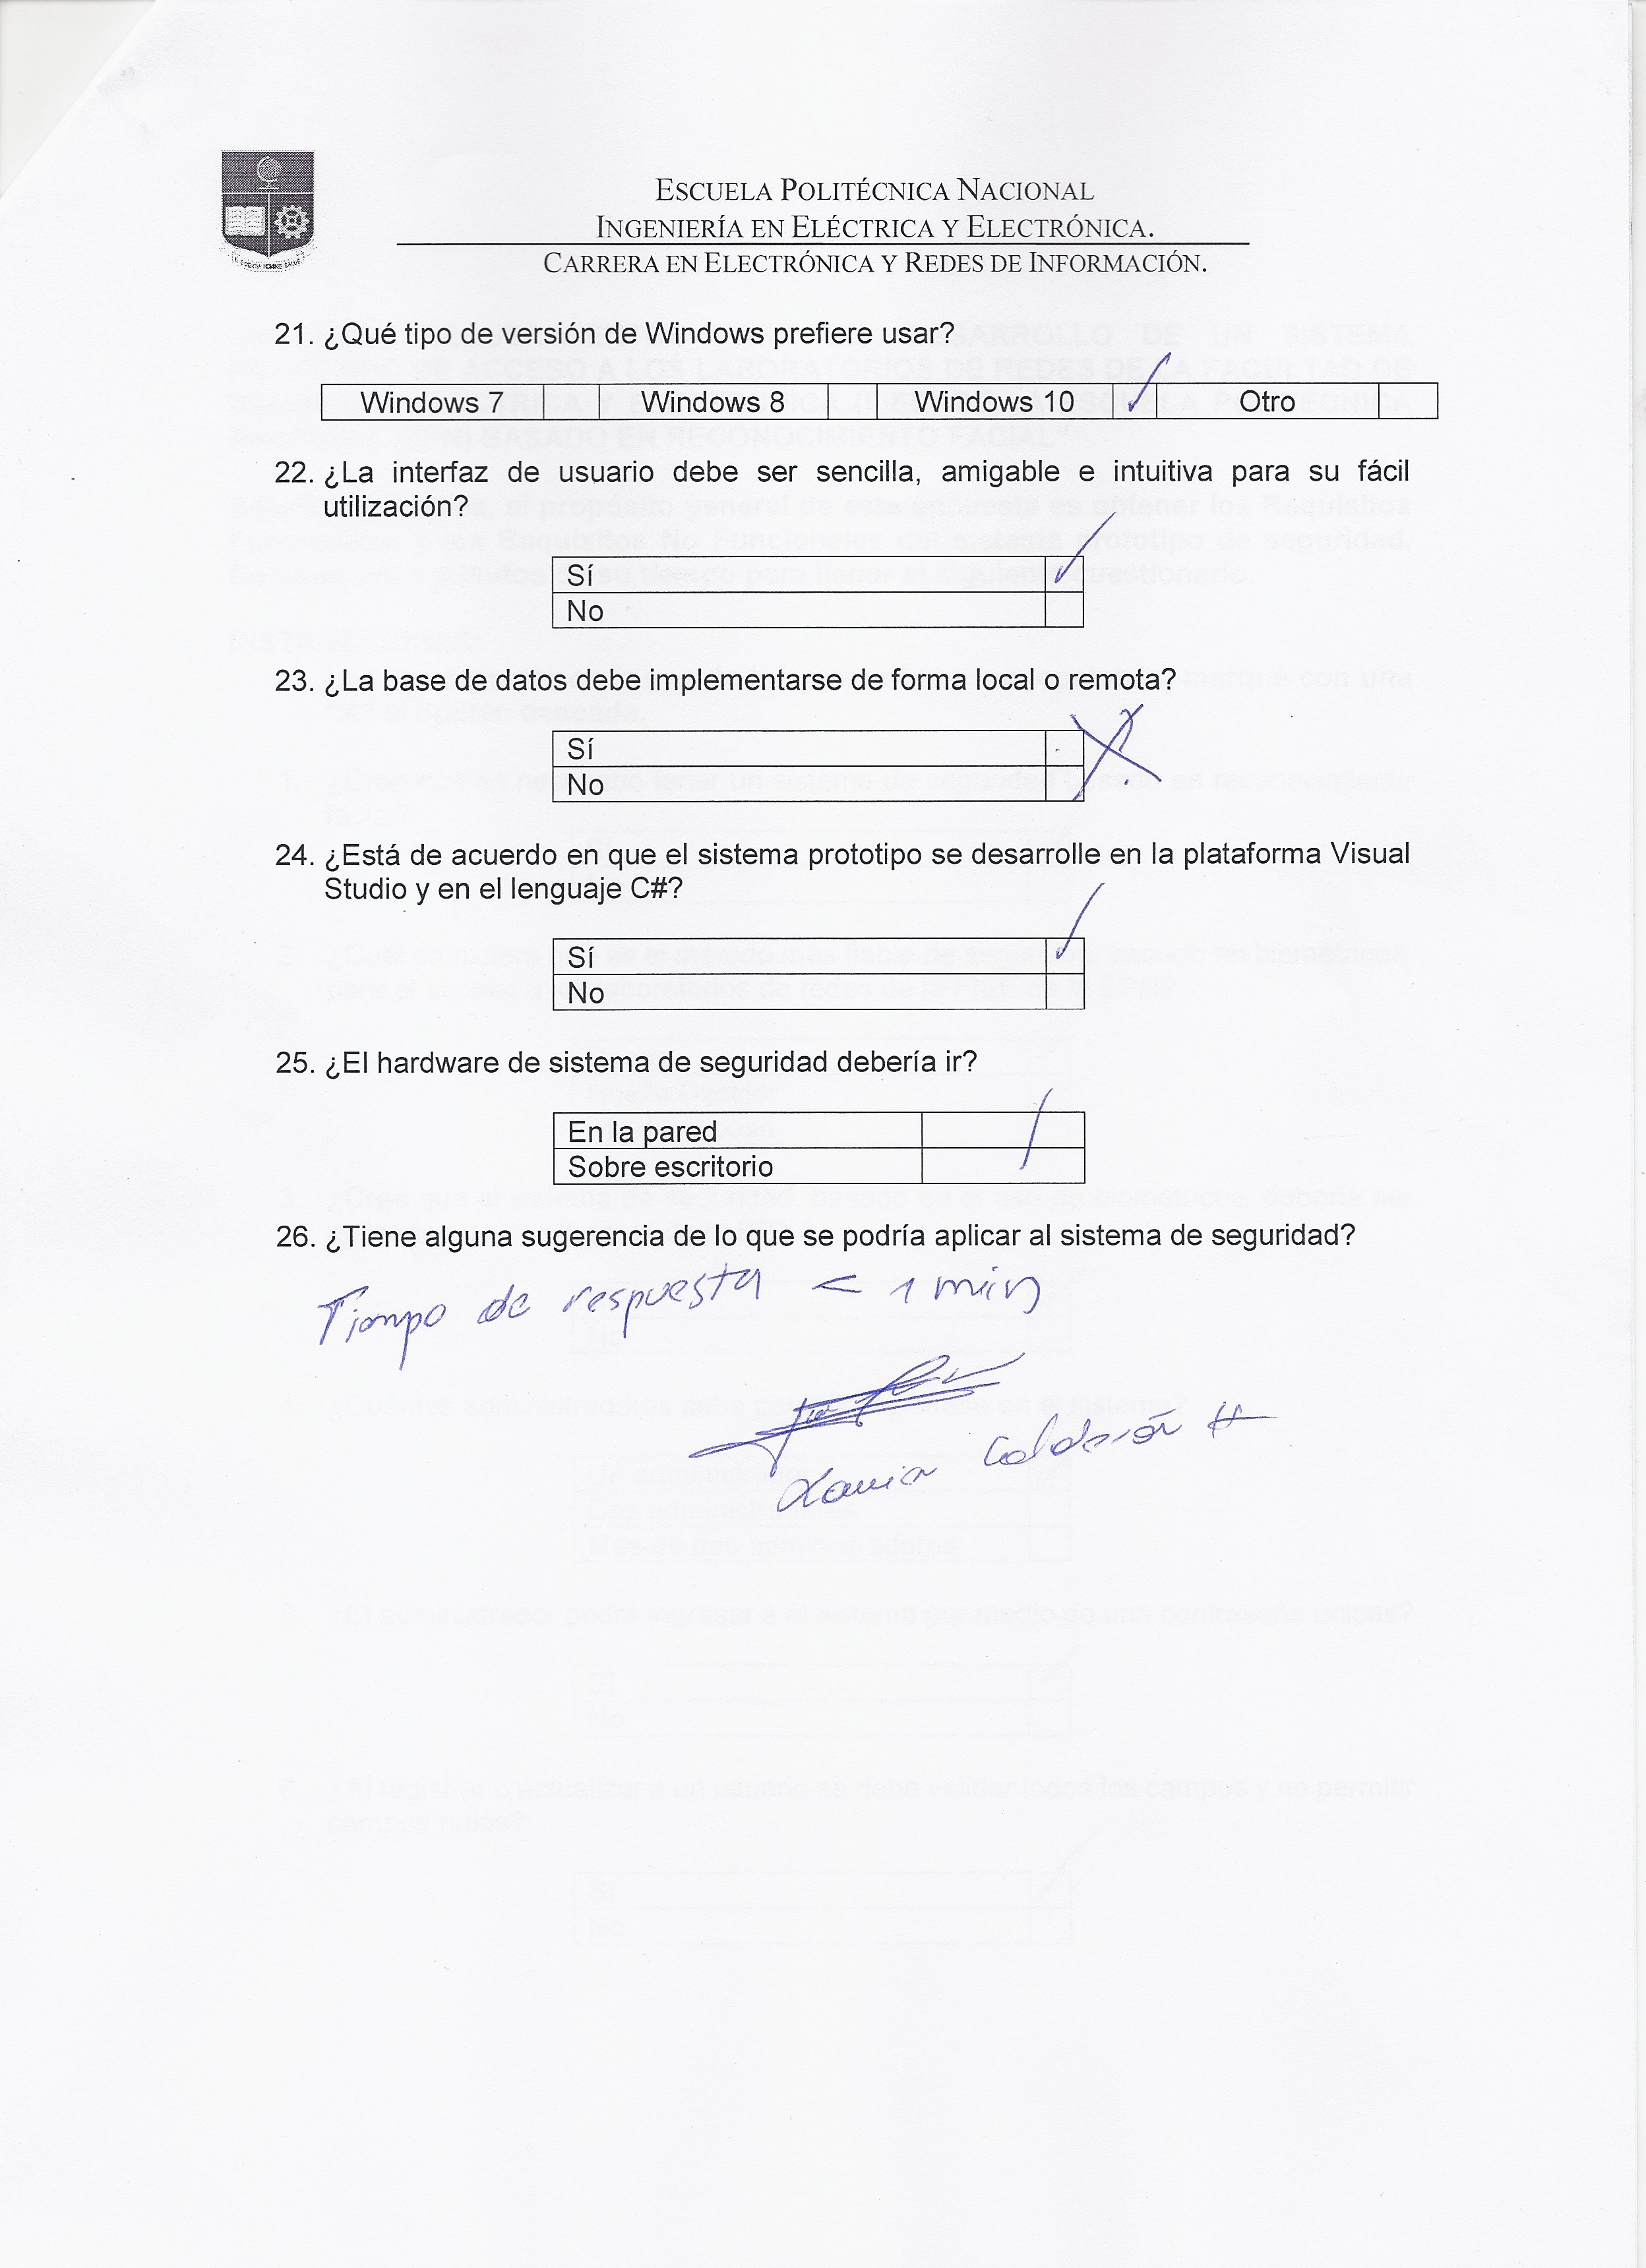 ESCUELA POLITÉCNICA NACIONAL
INGENIERÍA EN ELÉCTRICA Y ELECTRÓNICA.
CARRERA EN ELECTRÓNICA Y REDES DE INFORMACIÓN.
21. ¿Qué tipo de versión de Windows prefiere usar?
Windows 7 Windows 8 Windows 10 ✓ Otro
22. ¿La interfaz de usuario debe ser sencilla, amigable e intuitiva para su fácil
utilización?
Sí ✓
No
23. ¿La base de datos debe implementarse de forma local o remota?
Sí
No
24. ¿Está de acuerdo en que el sistema prototipo se desarrolle en la plataforma Visual
Studio y en el lenguaje C#?
Sí ✓
No
25. ¿El hardware de sistema de seguridad debería ir?
En la pared
Sobre escritorio
26. ¿Tiene alguna sugerencia de lo que se podría aplicar al sistema de seguridad?
Tiempo de respuesta < 1 min
Xavier Calderón H